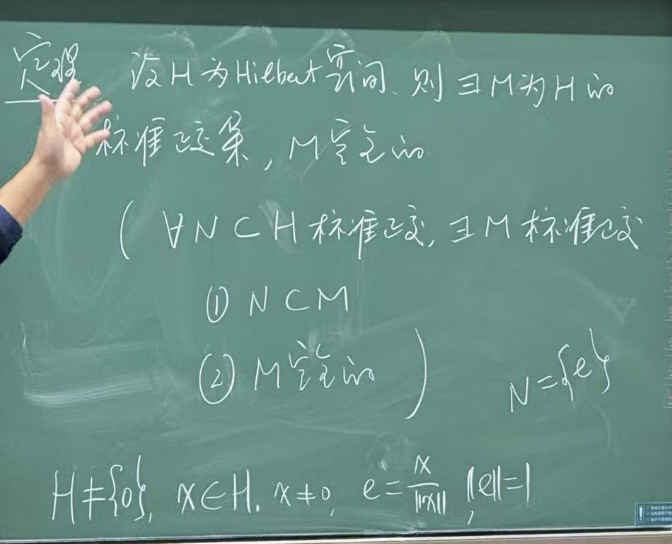 定理 设H为Hilbert空间, 则∃M为H的
标准正交集, M完全的
( ∀N⊂H 标准正交, ∃M 标准正交
① N⊂M
② M完全的 )
N={e}
H≠{0}, x∈H. x≠0, e=x/||x||, ||e||=1